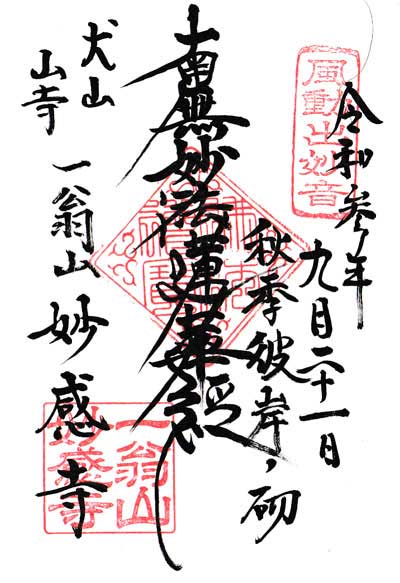 令和参年
九月二十一日
秋季彼岸ノ砌
南無妙法蓮華経
犬山
山寺
一翁山
妙感寺
風動出妙音
一翁山
妙感寺